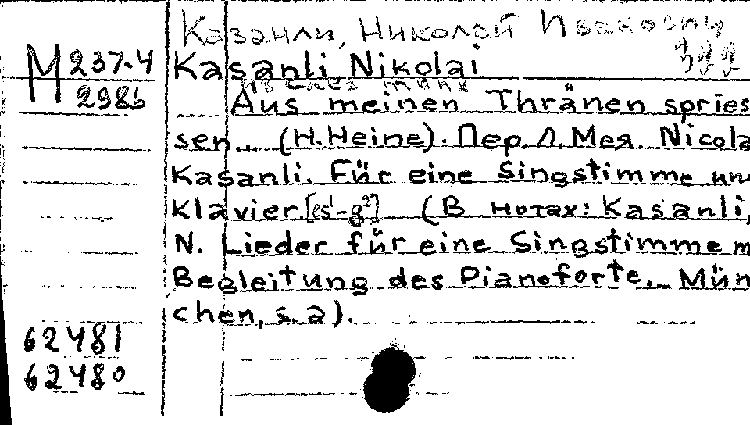 Казанли, Николай Иванович
М 237-4 Kasanli Nikolai
298б Aus meinen Thränen spries
sen... (H. Heine). Пер. Л. Мея. Nicola
Kasanli. Für eine Singstimme un
Klavier. [es¹-g²] (В нотах: Kasanli,
N. Lieder für eine Singstimme m
Begleitung des Pianoforte. Mün
chen, s. a).
62481
62480